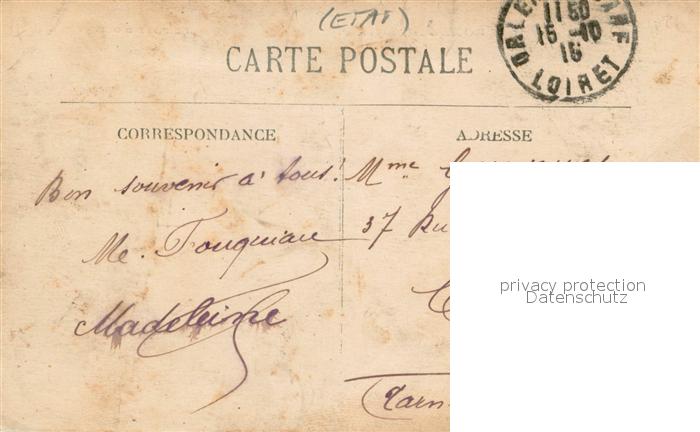 (ETAT)
CARTE POSTALE
11 30
15 - 10
15
LOIRET
CORRESPONDANCE
ADRESSE
Bon souvenir à tous!
Me. Fouquiau
Madeleine
Mme
37 Ru
Tarn
privacy protection
Datenschutz